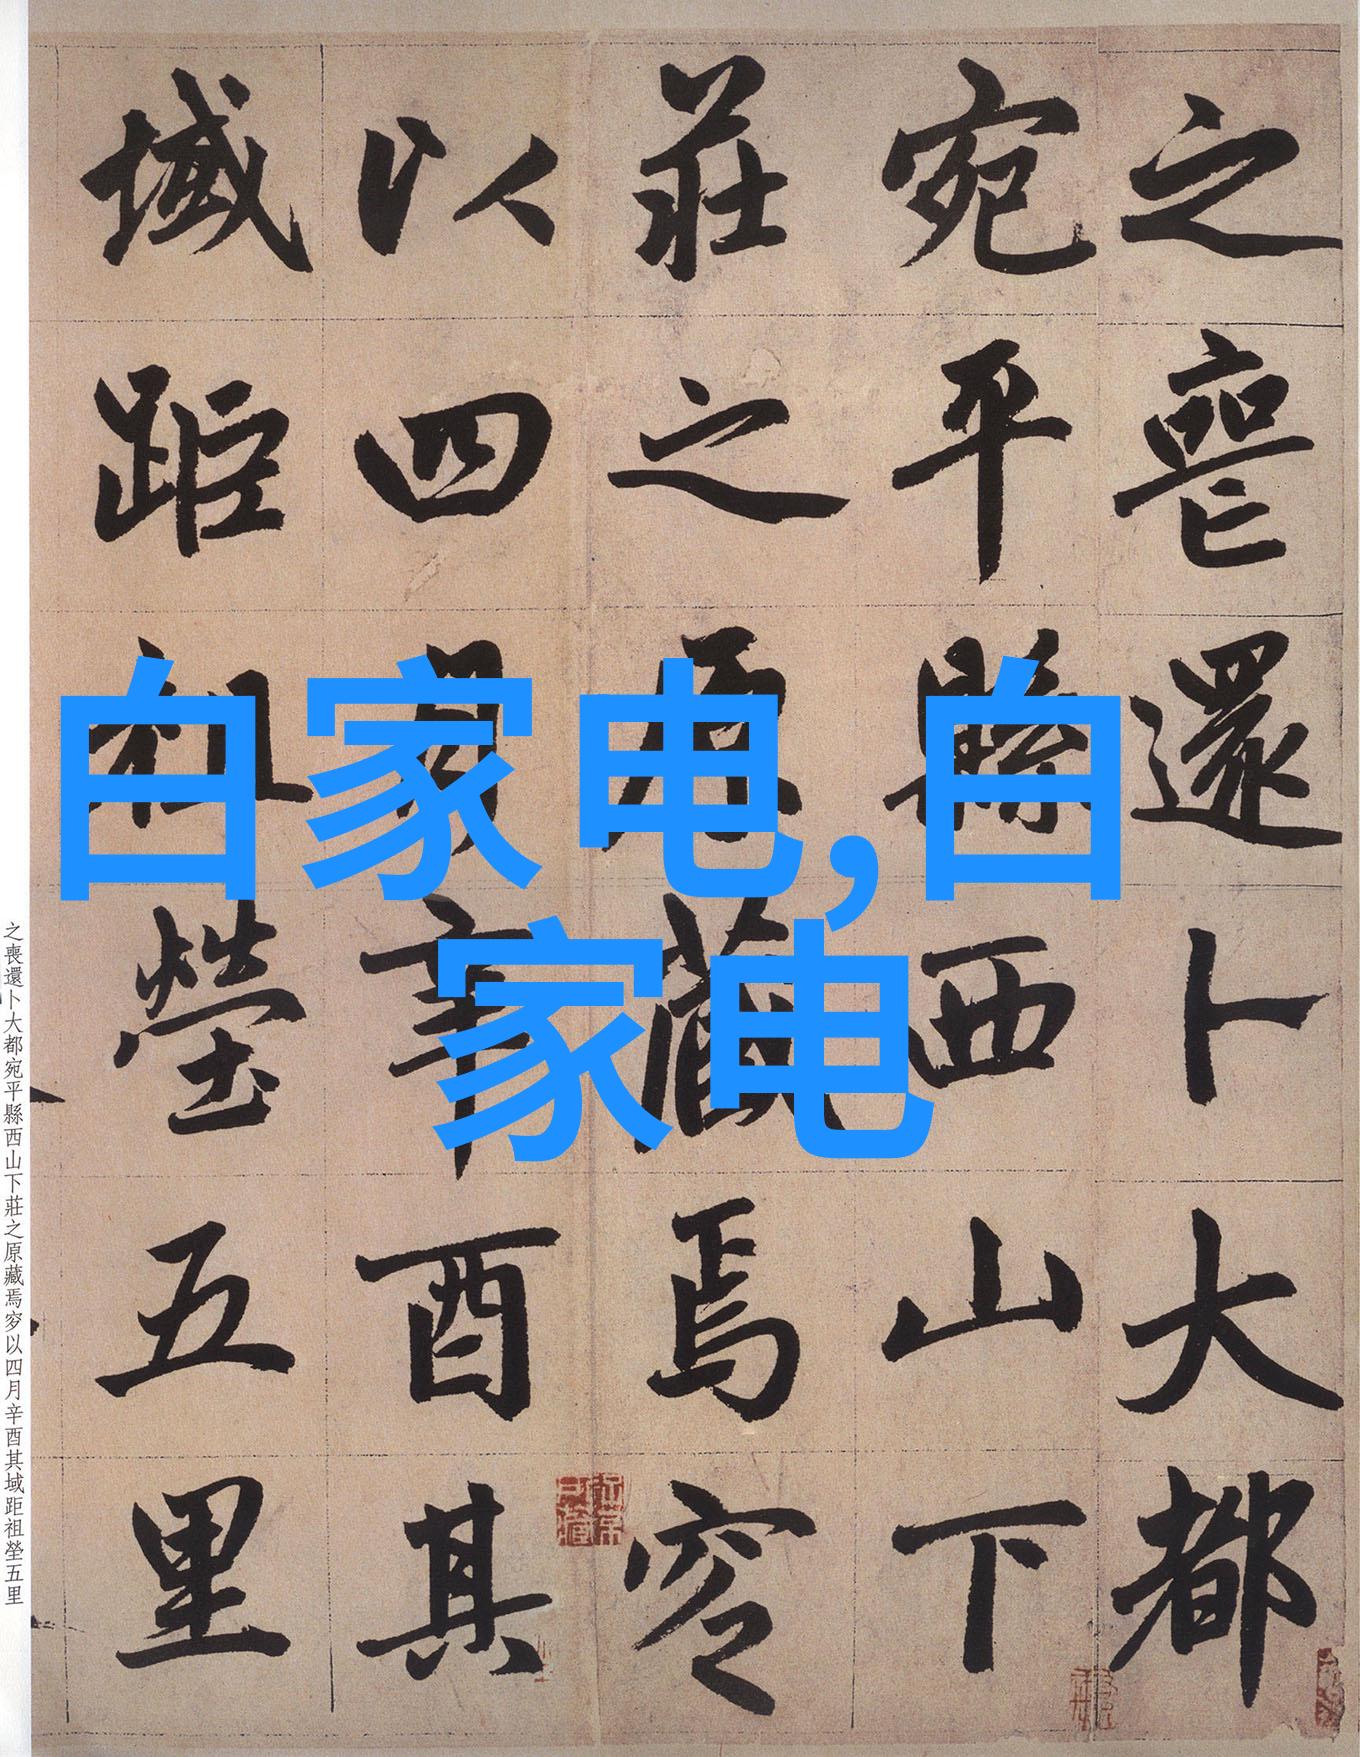 之喪還卜大都
宛平縣西山下
莊之原藏焉穸
以四月辛酉其
域距祖塋五里
白家电,白
家电
之喪還卜大都宛平縣西山下莊之原藏焉穸以四月辛酉其域距祖塋五里